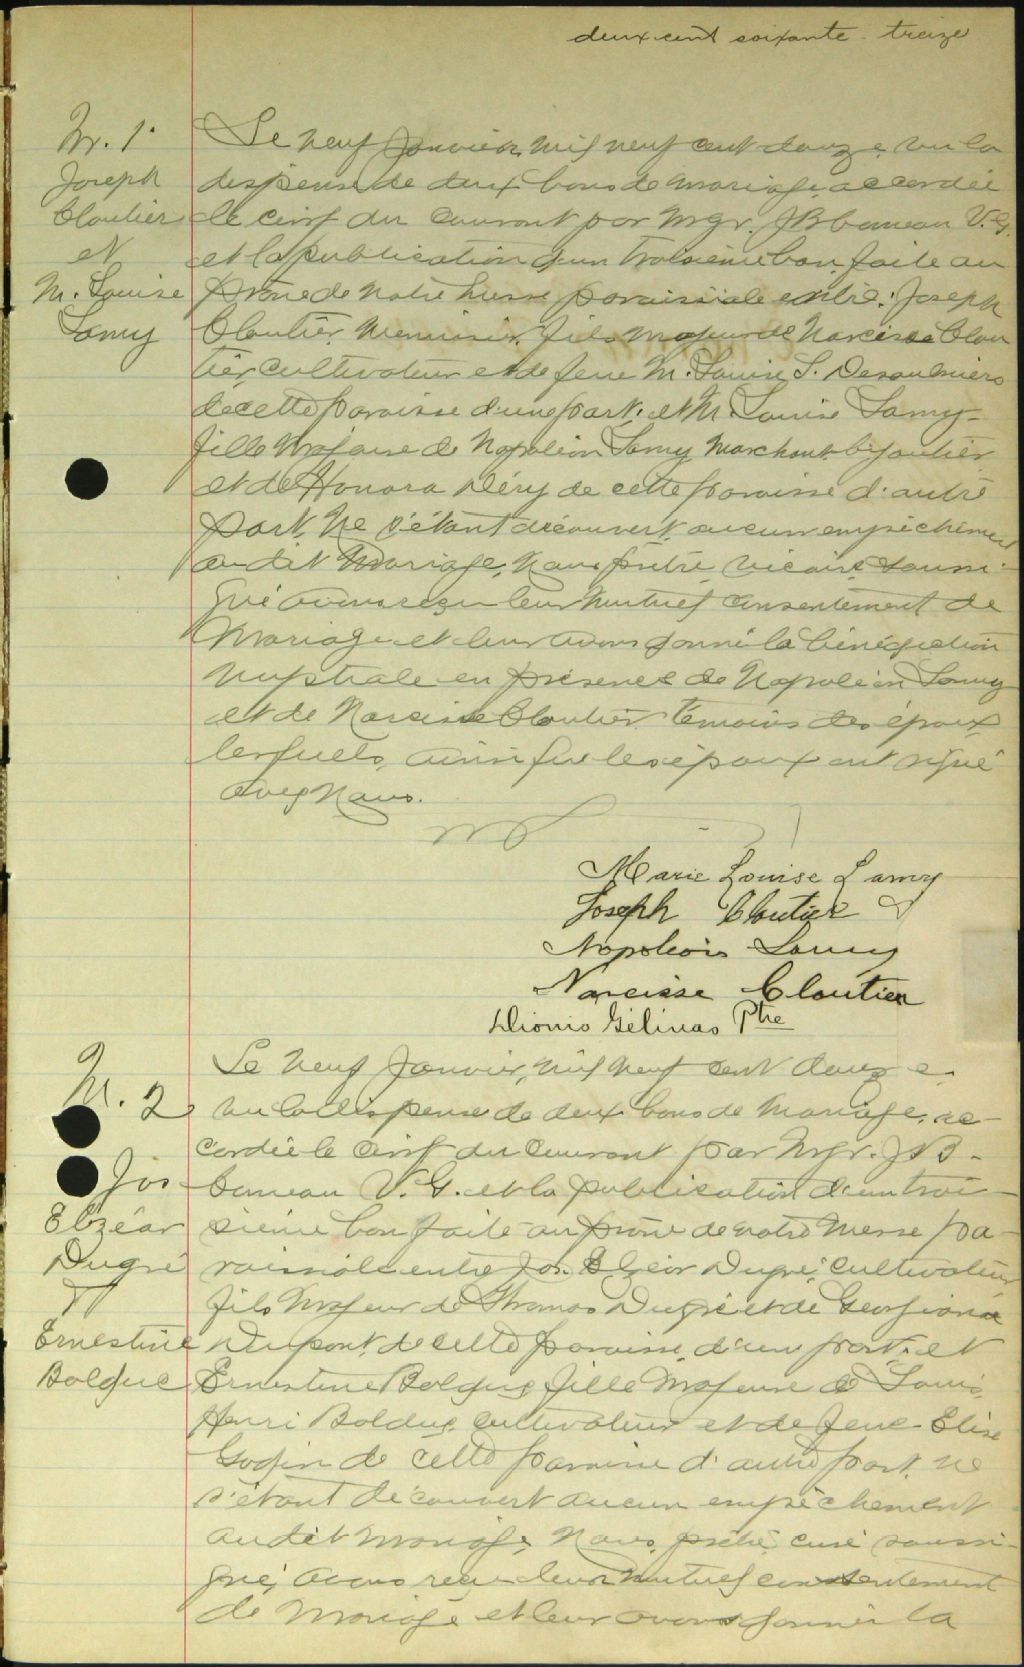 deux cent soixante-treize
M. 1
Joseph
Cloutier
et
M. Louise
Lamy
Le neuf Janvier, mil neuf cent douze, vu la
dispense de deux bans de mariage, accordée
le cinq du courant par Mgr. J B Comeau V. G.
et la publication d'un troisième ban, faite au
prône de notre messe paroissiale entre: Joseph
Cloutier, menuisier, fils majeur de Narcisse Clou
tier, cultivateur et de feue M. Louise L. Desaulniers
de cette paroisse d'une part; et M. Louise Lamy
fille majeure de Napoléon Lamy marchant-bijoutier
et de Honora Déry de cette paroisse d'autre
part. Ne s'étant découvert aucun empêchement
au dit Mariage, Nous prêtre vicaire soussi-
gné avons reçu leur mutuel consentement de
Mariage et leur avons donné la bénédiction
nuptiale en présence de Napoléon Lamy
et de Narcisse Cloutier témoins des époux
lesquels, ainsi que les époux ont signé
avec Nous.
Marie Louise Lamy
Joseph Cloutier
Napoléon Lamy
Narcisse Cloutier
Dionis Gélinas Ptre
M. 2
Jos
Elzéar
Dugré
et
Ernestine
Bolduc
Le neuf Janvier, mil neuf cent douze
vu la dispense de deux bans de mariage, ac-
cordée le cinq du courant par Mgr. J B -
Comeau V. G. et la publication d'un troi-
sième ban faite au prône de notre messe pa-
roissiale entre Jos. Elzéar Dugré, cultivateur
fils majeur de Thomas Dugré et de Georgiana
Dupont de cette paroisse, d'une part; et
Ernestine Bolduc fille majeure de Louis
Henri Bolduc, cultivateur et de feue Elise
Godin de cette paroisse d'autre part. Ne
s'étant découvert aucun empêchement
au dit mariage, Nous, prêtre, curé soussi-
gné, avons reçu leur mutuel consentement
de Mariage et leur avons donné la